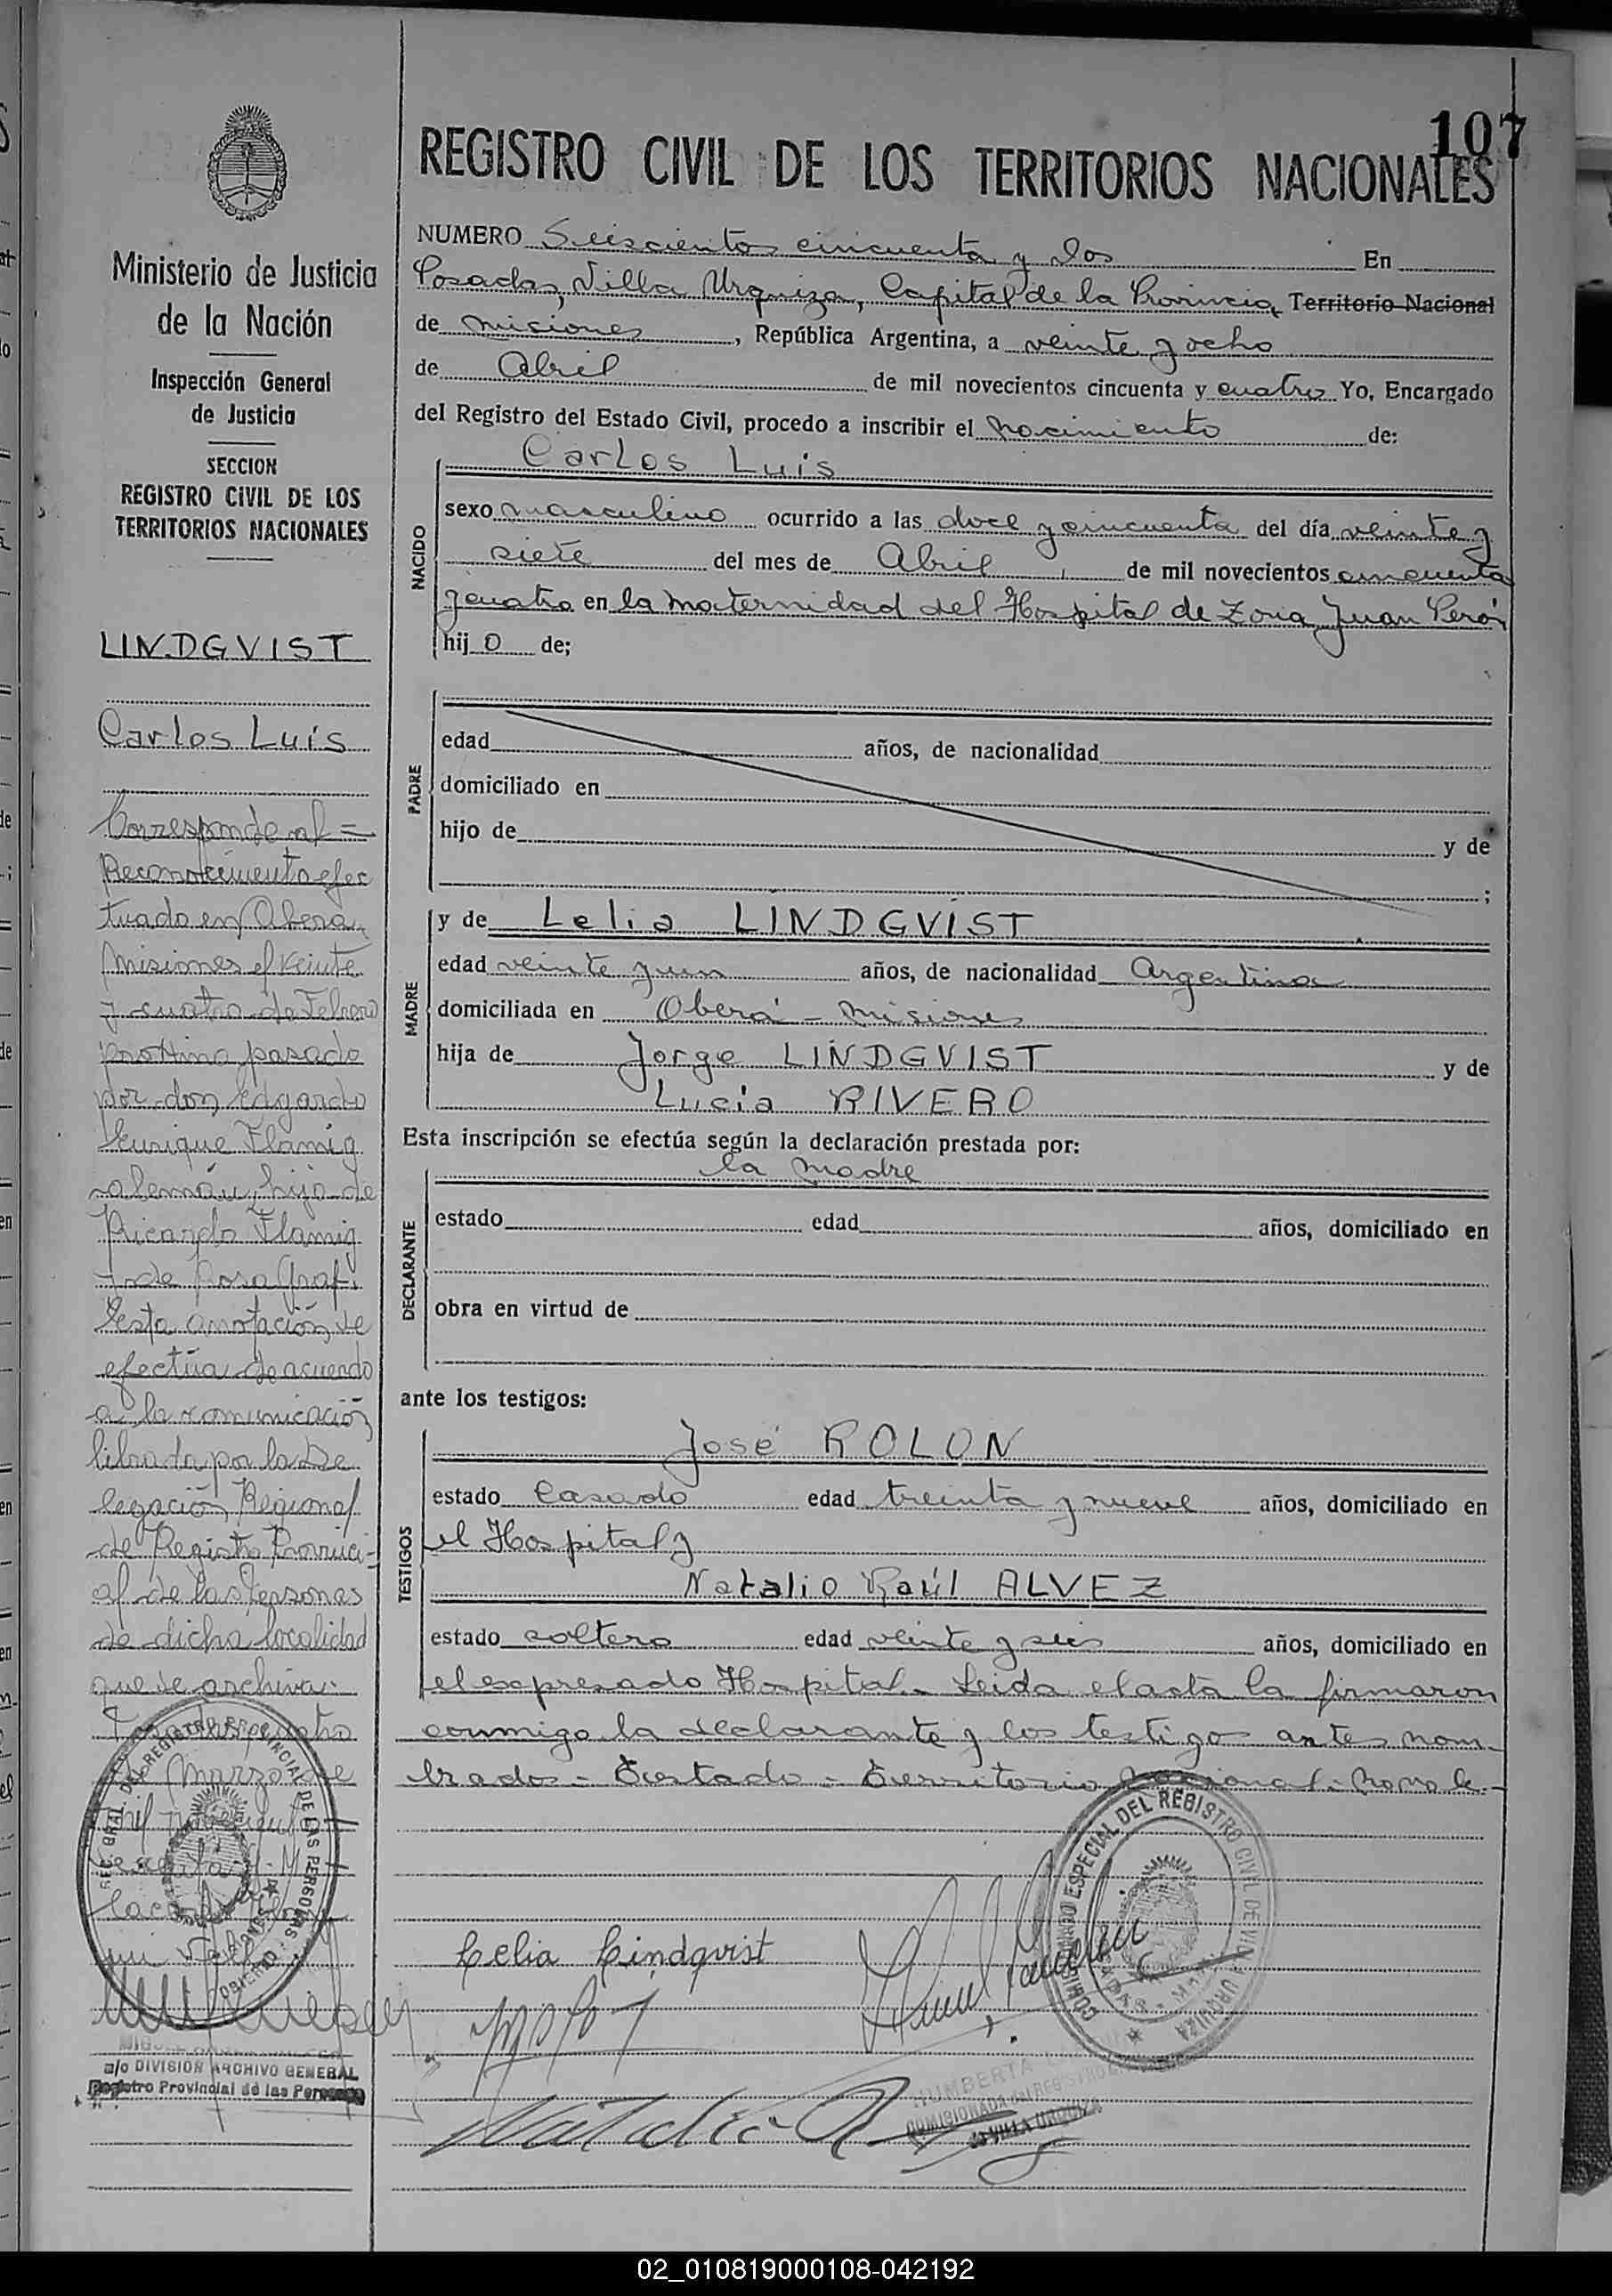 107
REGISTRO CIVIL DE LOS TERRITORIOS NACIONALES
Ministerio de Justicia
de la Nación
Inspección General
de Justicia
SECCION
REGISTRO CIVIL DE LOS
TERRITORIOS NACIONALES
LINDGVIST
Carlos Luis
Corresponde al =
Reconocimiento efec
tuado en Oberá,
Misiones el veinte
y cuatro de Febrero
próximo pasado
por don Edgardo
Enrique Flamig
alemán, hijo de
Ricardo Flamig
y de Rosa Graf.
Esta anotación se
efectúa de acuerdo
a la comunicación
librada por la De
legación Regional
de Registro Provinci=
al de las Personas
de dicha localidad
que se archiva.
Marzo de
mil
a/c DIVISION ARCHIVO GENERAL
Registro Provincial de las Personas
NUMERO Seiscientos cincuenta y dos En
Posadas, Villa Urquiza, Capital de la Provincia, Territorio Nacional
de Misiones, República Argentina, a veinte y ocho
de Abril de mil novecientos cincuenta y cuatro Yo, Encargado
del Registro del Estado Civil, procedo a inscribir el nacimiento de:
Carlos Luis
NACIDO
sexo masculino ocurrido a las doce y cincuenta del día veinte y
siete del mes de Abril, de mil novecientos cincuenta
y cuatro en la maternidad del Hospital de Zona Juan Perón
hij o de;
PADRE
edad años, de nacionalidad
domiciliado en
hijo de y de
;
MADRE
y de Lelia LINDGVIST
edad veinte y un años, de nacionalidad Argentina
domiciliada en Oberá - Misiones
hija de Jorge LINDGVIST y de
Lucia RIVERO
Esta inscripción se efectúa según la declaración prestada por:
la madre
DECLARANTE
estado edad años, domiciliado en
obra en virtud de
ante los testigos:
José ROLON
TESTIGOS
estado Casado edad treinta y nueve años, domiciliado en
el Hospital y
Natalio Raúl ALVEZ
estado soltero edad veinte y seis años, domiciliado en
el expresado Hospital. Leida el acta la firmaron
conmigo la declarante y los testigos antes nom-
brados - Testado - Territorio Nacional - no vale -
COMISIONADO ESPECIAL DEL REGISTRO CIVIL DE VILLA URQUIZA
Celia Lindqvist
02_010819000108-042192